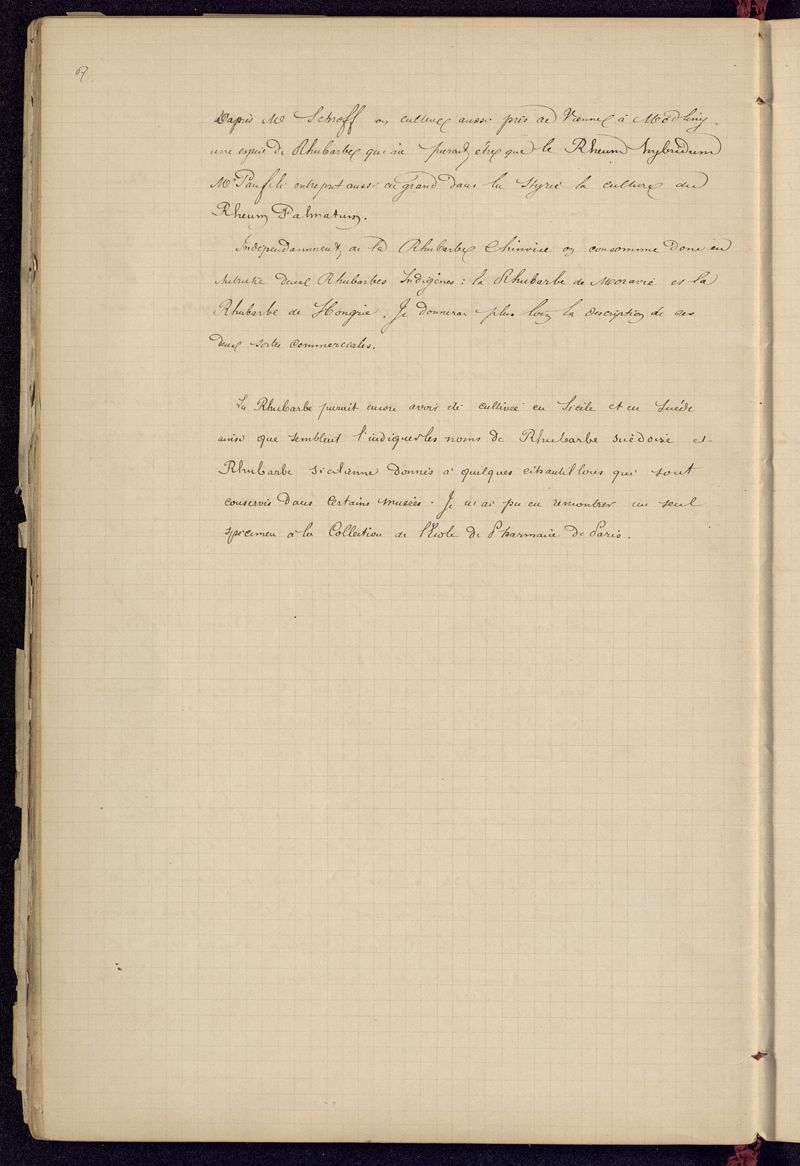 67
D'après Mr Schroff on cultive aussi près de Vienne à Mödling
une espèce de Rhubarbe qui ne parait être que le Rheum hybridum
Mr entreprit aussi en grand dans la Styrie la culture du
Rheum Palmatum.
Indépendamment de la Rhubarbe Chinoise on consomme donc en
Autriche deux Rhubarbes Indigènes : la Rhubarbe de Moravie et la
Rhubarbe de Hongrie. Je donnerai plus loin la description de ces
deux sortes commerciales.
La Rhubarbe parait encore avoir été cultivée en Sicile et en Suède
ainsi que semblent l'indiquer les noms de Rhubarbe suédoise et
Rhubarbe sicilienne donnés à quelques échantillons qui sont
conservés dans certains musées. Je n'ai pu en rencontrer un seul
spécimen à la Collection de l'Ecole de Pharmacie de Paris.